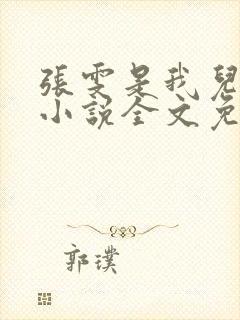 張雯是我兒
小說全文免
郭璞